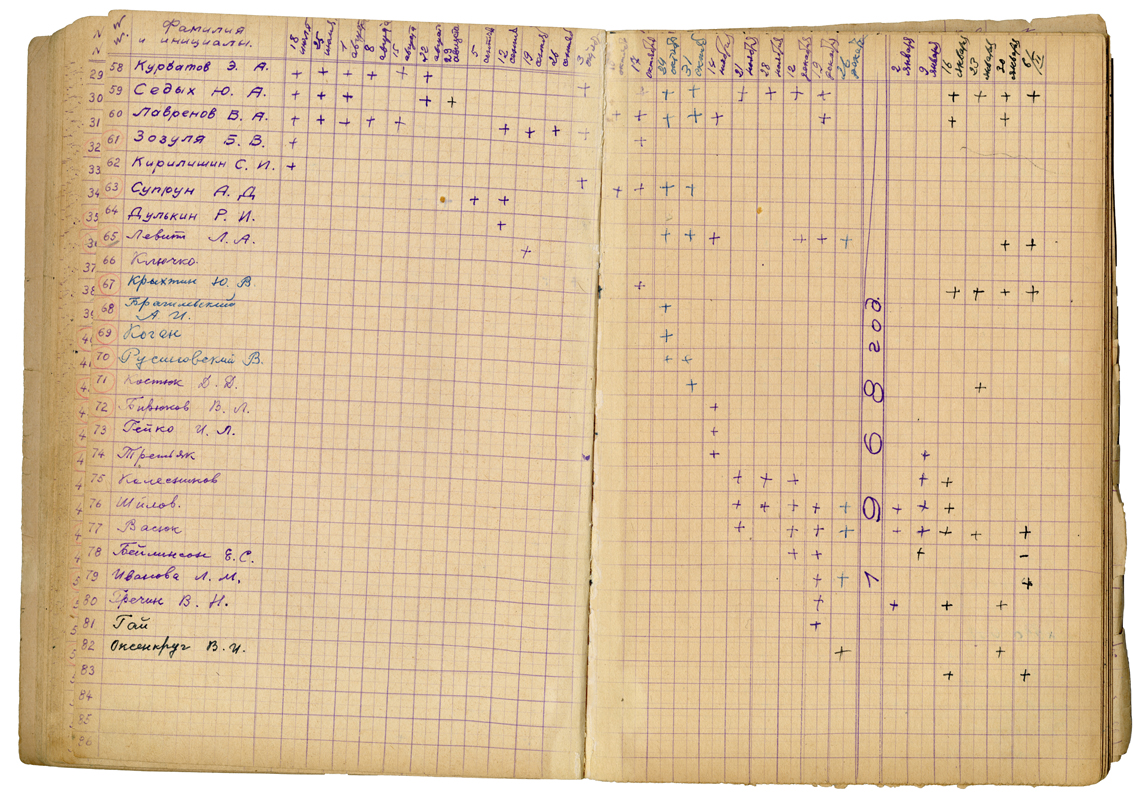 N N Фамилия и инициалы. 18 июля 25 июля 1 августа 8 августа 15 августа 22 августа 29 августа 5 12 19 26 3 17 октября 24 октября 31 октября 14 ноября 21 ноября 28 ноября 12 декабря 19 декабря 26 декабря 2 января 9 января 16 января 23 января 30 января 6/II
29 58 Курбатов Э. А. + + + + + +
30 59 Седых Ю. А. + + + + +
31 60 Лавренов В. А. + + + + + + + +
32 61 Зозуля Б. В. +
33 62 Кирилишин С. И. +
34 63 Супрун А. Д + +
35 64 Дулькин Р. И. +
65 Левит Л. А. +
37 66 Ключко.
67 Крыхтин Ю. В.
68 Брагилевский А И.
69 Коган
70 Русиновский В.
71 Костюк Д. Д.
72 Бирюков В. Л.
73 Гейко И. Л.
74 Третьяк
75 Колесников
76 Шилов.
77 Васюк
78 Бейлинсон Е. С.
79 Иванова Л. М.
80 Гречин В. Н.
81 Гай
82 Оксенкруг В. И.
83
84
85
86
1968 год